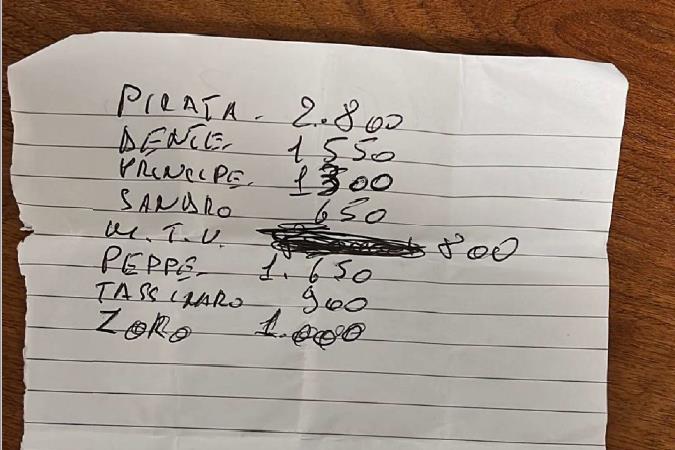 PIRATA. 2.800
DENTE. 1550
PRINCIPE. 1300
SANDRO 650
M.T.V. 800
PEPPE. 1.650
TASSINARO 900
ZORO 1.000